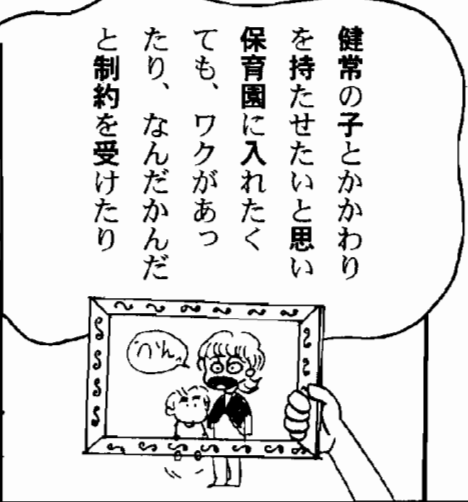 健常の子とかかわり
を持たせたいと思い
保育園に入れたく
ても、ワクがあっ
たり、なんだかんだ
と制約を受けたり